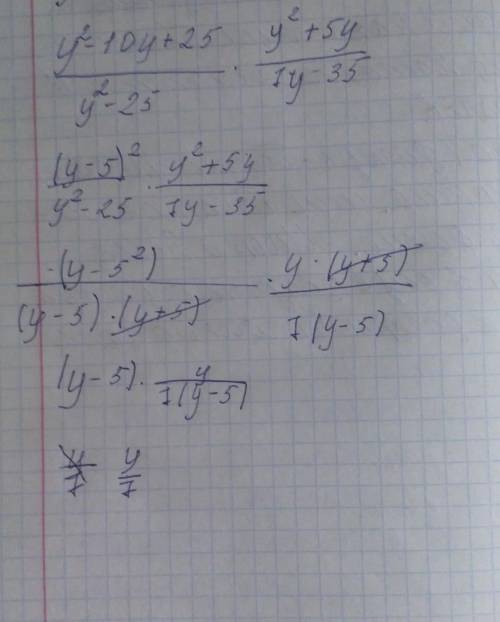 y²-10y+25 / y²-25 · y²+5y / 7y-35
(y-5)² / y²-25 · y²+5y / 7y-35
-(y-5²) / (y-5)·(y+5) · y·(y+5) / 7(y-5)
(y-5)· y / 7(y-5)
y/7 y/7